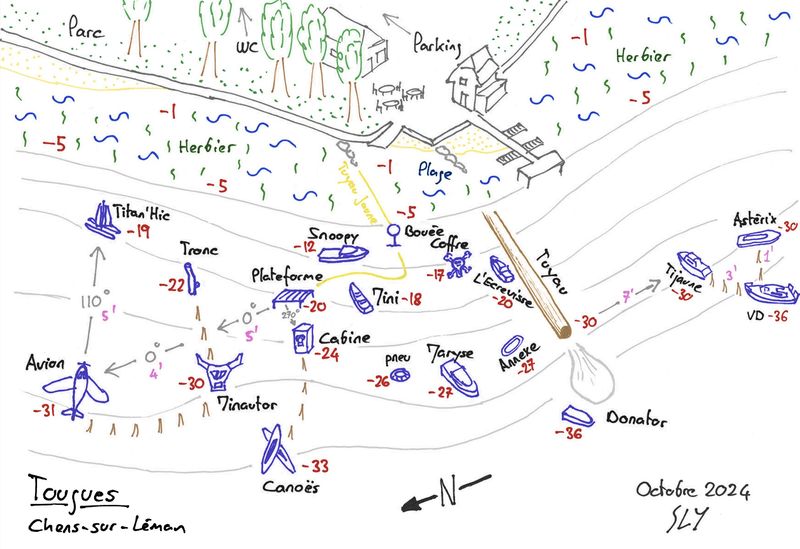 Parc
WC
Parking
-1
Herbier
-5
-1
-5
Herbier
-5
-1
Plage
Tuyau Jaune
-5
Bouée
Titan'Hic
-19
Snoopy
-12
Coffre
-17
L'Ecrevisse
-20
Tuyau
-30
Astérix
-30
1'
Tijaune
-30
3'
VD -36
7'
Tronc
-22
Plateforme
-20
Mini -18
110°
5'
0°
5'
270°
Cabine
-24
Avion
-31
0°
4'
-30
Minautor
pneu
-26
Maryse
-27
Annexe
-27
Donator
-36
-33
Canoës
N
Tougues
Chens-sur-Léman
Octobre 2024
SLY